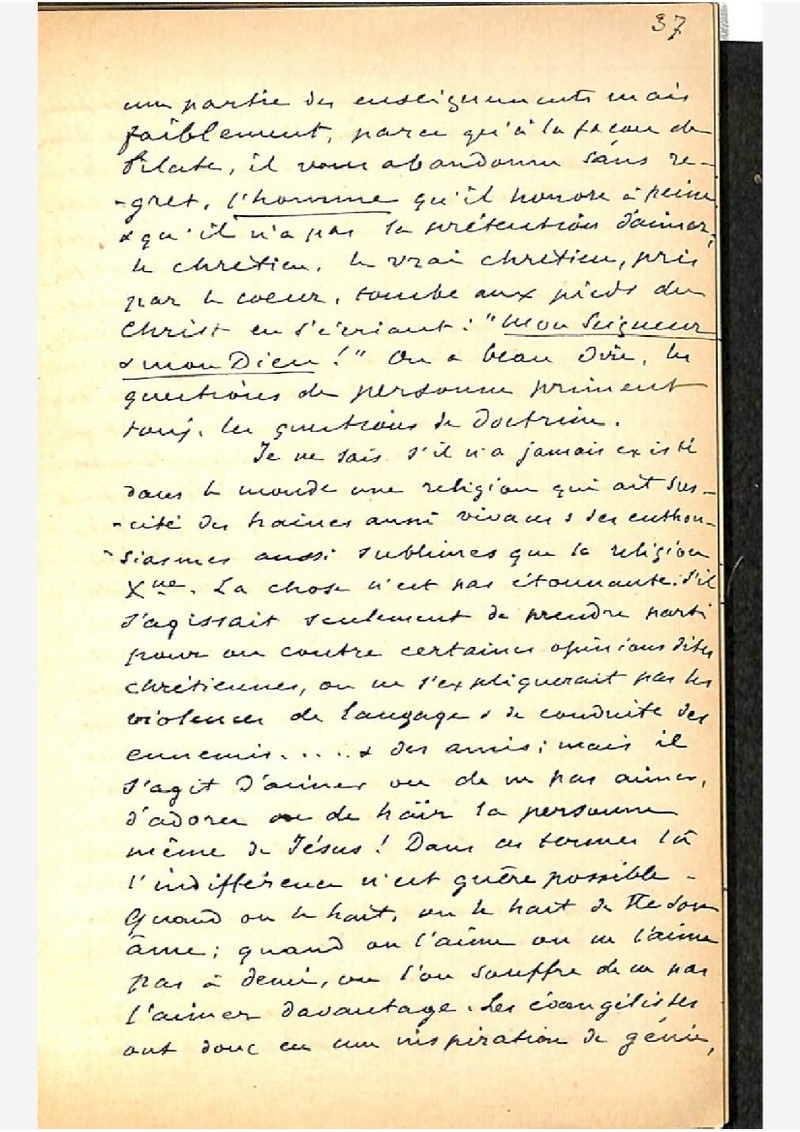 37
une partie des enseignements mais
faiblement, parce qu'à la façon de
Pilate, il vous abandonne sans re-
-gret, l'homme qu'il honore à peine
& qu'il n'a pas la prétention d'aimer,
le chrétien, le vrai chrétien, pris
par le coeur, tombe aux pieds du
Christ en s'écriant : "Mon Seigneur
& mon Dieu !" On a beau dire, les
questions de personne priment
touj. les questions de doctrine.
Je ne sais s'il n'a jamais existé
dans le monde une religion qui ait sus-
-cité des haines aussi vivaces & des enthou-
-siasmes aussi sublimes que la religion
Xne. La chose n'est pas étonnante. S'il
s'agissait seulement de prendre parti
pour ou contre certaines opinions dites
chrétiennes, on ne s'expliquerait pas les
violences de langage & de conduite des
ennemis..... & des amis ; mais il
s'agit d'aimer ou de ne pas aimer,
d'adorer ou de haïr la personne
même de Jésus ! Dans ces termes là
l'indifférence n'est guère possible -
Quand on le hait, on le hait de tte son
âme ; quand on l'aime on ne l'aime
pas à demi, ou l'on souffre de ne pas
l'aimer davantage. Les évangélistes
ont donc eu une inspiration de génie,